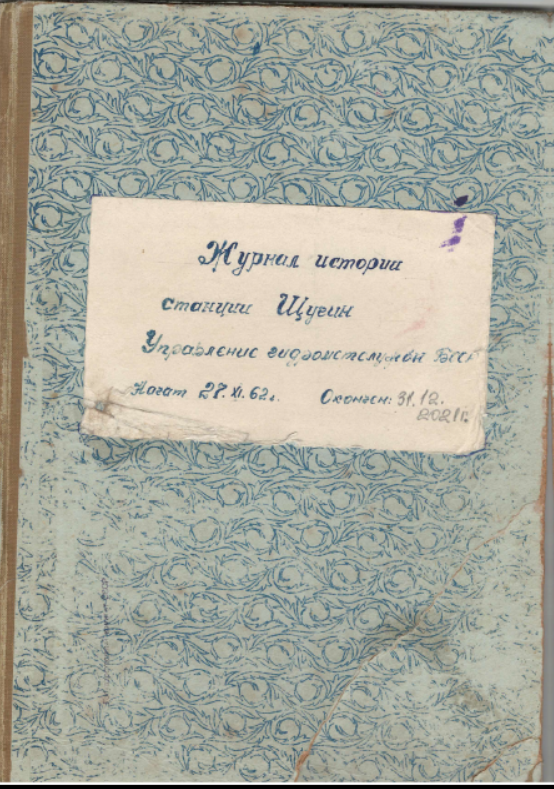 Журнал истории
станции Щучин
Управление гидрометслужбы БССР
Начат 27.XI.62г. Окончен: 31.12.
2021г.